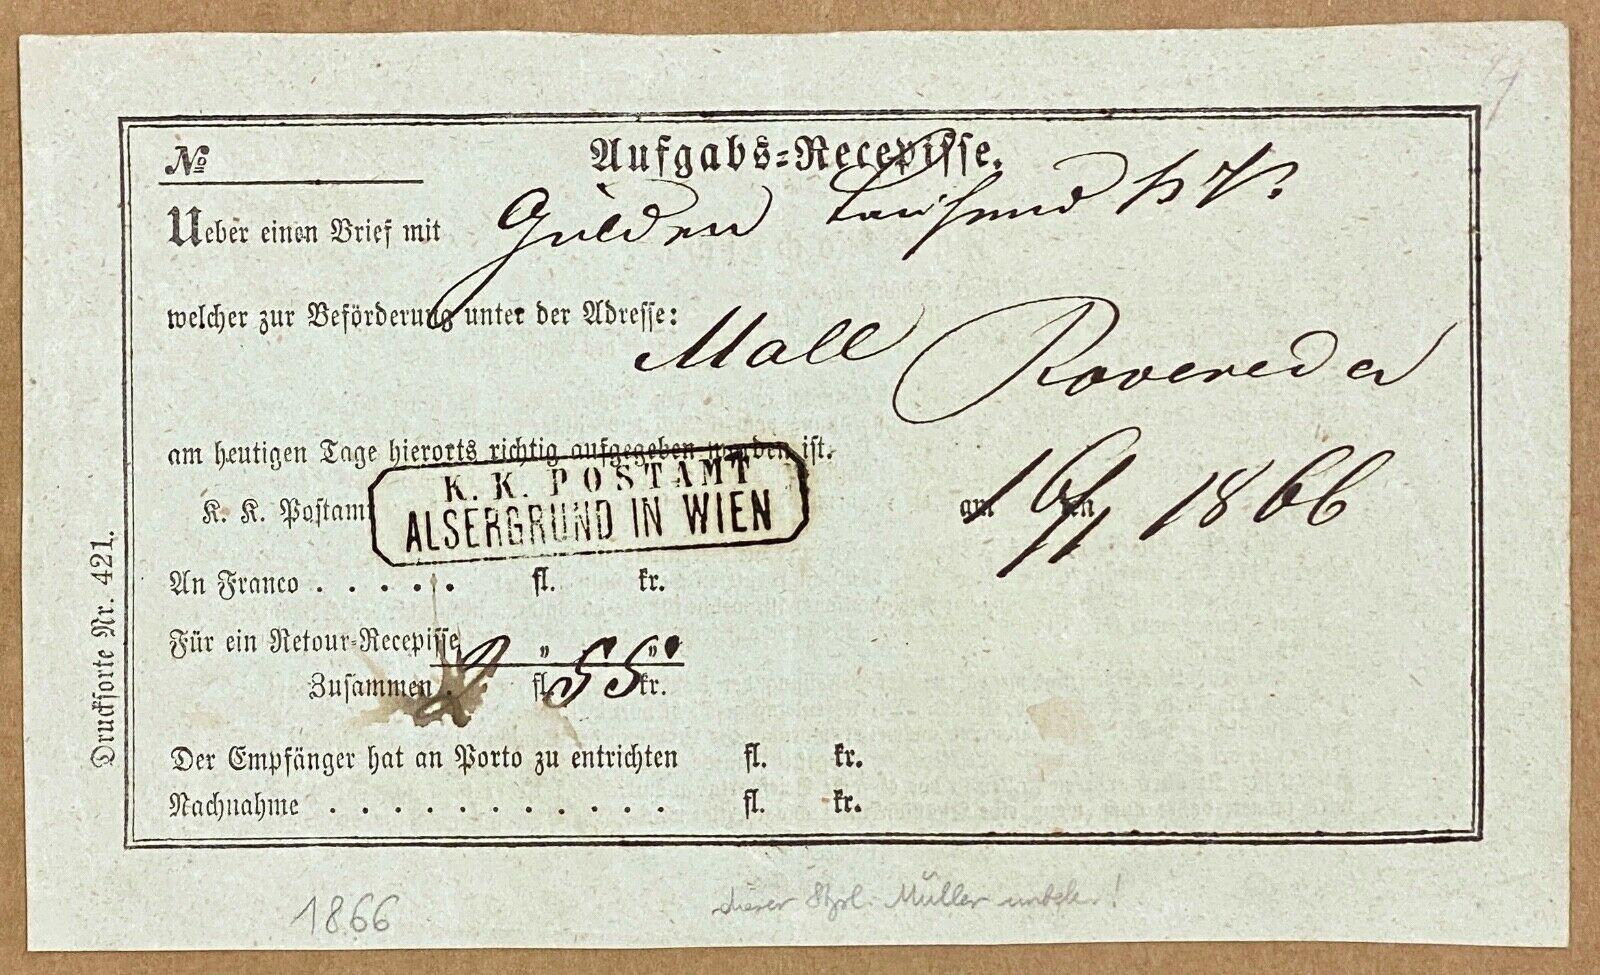 Aufgabs=Recepisse.
№
Ueber einen Brief mit Gulden tausend
welcher zur Beförderung unter der Adresse:
Mall Rovereda
am heutigen Tage hierorts richtig aufgegeben worden ist.
K. K. Postamt
K. K. POSTAMT
ALSERGRUND IN WIEN
am 16/11 1866
An Franco . . . . . fl. kr.
Für ein Retour=Recepisse „ „
Zusammen . 2 fl. 55 kr.
Der Empfänger hat an Porto zu entrichten fl. kr.
Nachnahme . . . . . . . . . . . fl. kr.
Drucksorte Nr. 421.
1866
dieser Müller unbek.!